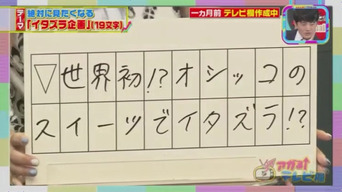 テーマ 絶対に見たくなる
「イタズラ企画」(19文字)
一カ月前 テレビ欄作成中
▽世界初!?オシッコの
スイーツでイタズラ!?
テレビ